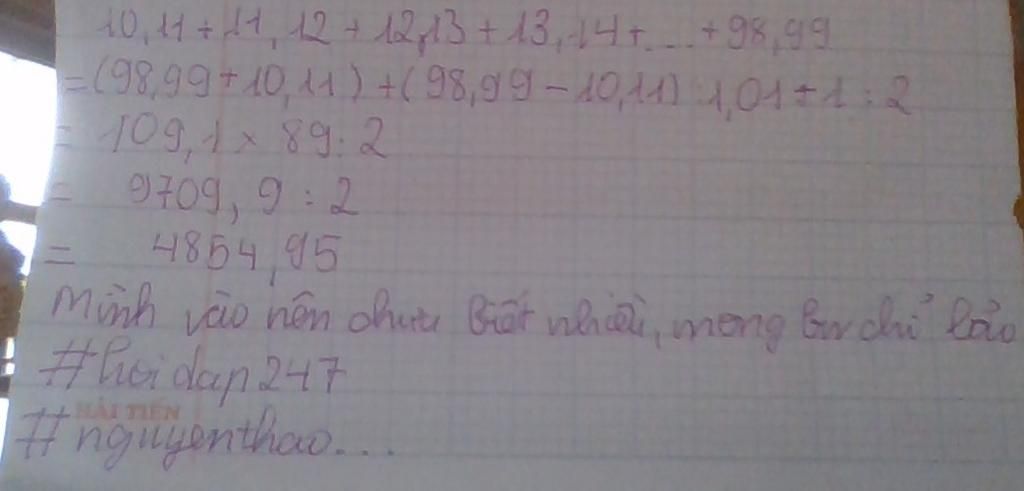 10,11 + 11,12 + 12,13 + 13,14 + ... + 98,99
= (98,99 + 10,11) + (98,99 - 10,11) : 1,01 + 1 : 2
= 109,1 × 89 : 2
= 9709,9 : 2
= 4854,95
Mình vào nên chưa biết nhiều, mong bn chỉ bảo
#hoidap247
HẢI TIẾN
#nguyenthao...